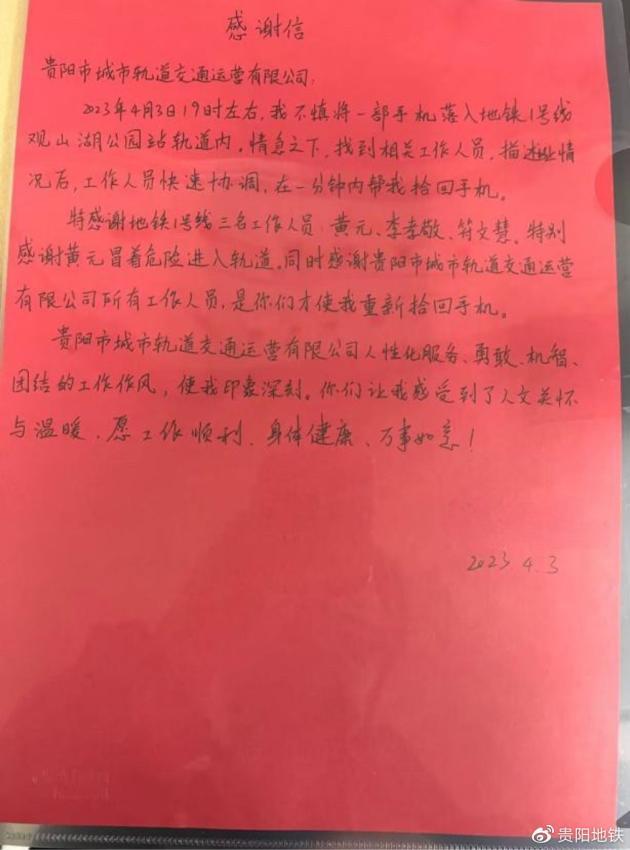 感谢信
贵阳市城市轨道交通运营有限公司:
2023年4月3日19时左右,我不慎将一部手机落入地铁1号线
观山湖公园站轨道内,情急之下,找到相关工作人员,描述情
况后,工作人员快速协调,在一分钟内帮我拾回手机。
特感谢地铁1号线三名工作人员:黄元、李孝敬、符文慧。特别
感谢黄元冒着危险进入轨道。同时感谢贵阳市城市轨道交通运营
有限公司所有工作人员,是你们才使我重新拾回手机。
贵阳市城市轨道交通运营有限公司人性化服务、勇敢、机智、
团结的工作作风,使我印象深刻。你们让我感受到了人文关怀
与温暖,愿工作顺利、身体健康、万事如意!
2023 4.3
贵阳地铁